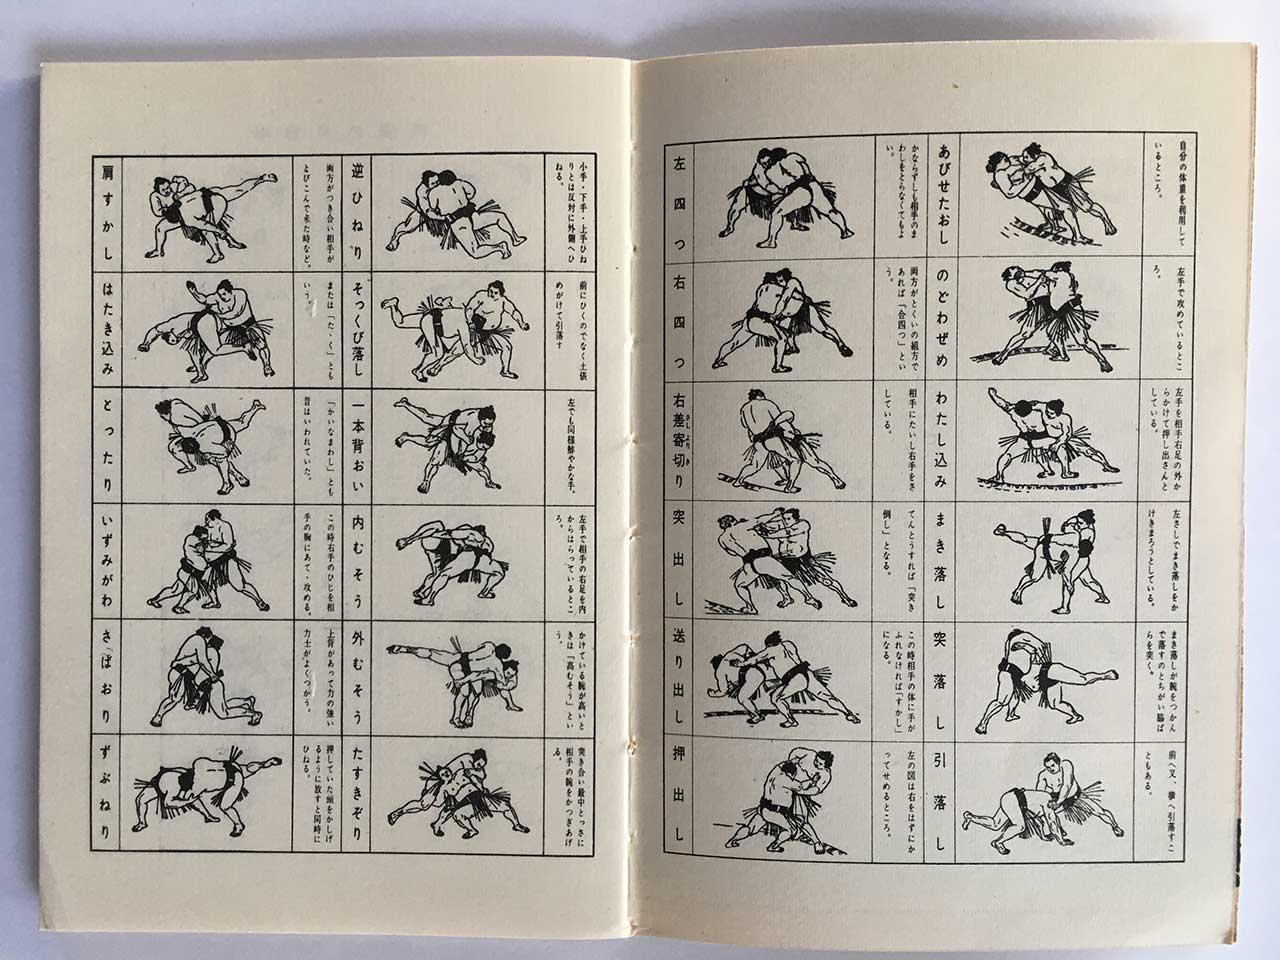 あびせたおし
自分の体重を利用して
いるところ。
のどわぜめ
左手で攻めているとこ
ろ。
わたし込み
左手を相手右足の外か
らかけて押し出さんと
している。
まき落し
左さしでまき落しをか
けきまろうとしている。
突落し
まき落しが腕をつかん
で落すのとちがい脇ば
らを突く。
引落し
前へ又、横へ引落すこ
ともある。
左四つ
かならずしも相手のま
わしをとらなくてもよ
い。
右四つ
両方がとくいの組方で
あれば「合四つ」とい
う。
右差寄切り
さしよりき
相手にたいし右手をさ
している。
突出し
てんとうすれば「突き
倒し」となる。
送り出し
この時相手の体に手が
ふれなければ「すかし」
になる。
押出し
左の図は右をはずにか
ってせめるところ。
逆ひねり
小手・下手・上手ひね
りとは反対に外側へひ
ねる。
そっくび落し
前にひくのでなく土俵
めがけて引落す
一本背おい
左でも同様鮮やかな手。
内むそう
左手で相手の右足を内
からはらっているとこ
ろ。
外むそう
かけている腕が高いと
きは「高むそう」とい
う。
たすきぞり
突き合い最中とっさに
相手の腕をかつぎあげ
る。
肩すかし
両方がつき合い相手が
とびこんで来た時など。
はたき込み
または「たゝく」とも
いう。
とったり
「かいなまわし」とも
昔はいわれていた。
いずみがわ
この時右手のひじを相
手の胸にあて・攻める。
さばおり
上背があって力の強い
力士がよくつかう。
ずぶねり
押していた頭をかしげ
るように放すと同時に
ひねる。